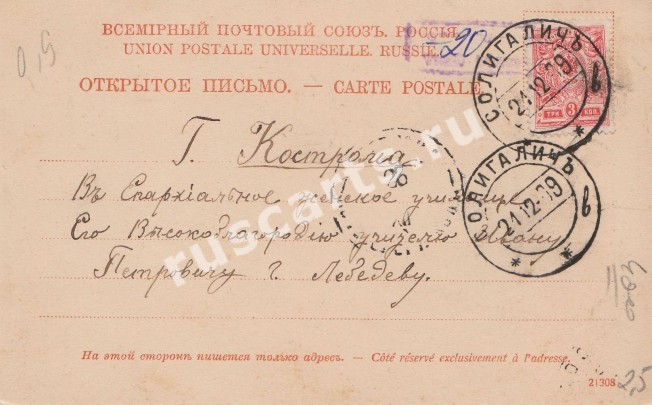 ВСЕМІРНЫЙ ПОЧТОВЫЙ СОЮЗЪ. РОССІЯ.
UNION POSTALE UNIVERSELLE. RUSSIE.
ОТКРЫТОЕ ПИСЬМО. — CARTE POSTALE.
0,5
20
СОЛИГАЛИЧЪ
21 12 09
в
3
ТРИ КОП.
Г. Кострома
Въ Епархіальное женское училище
Его Высокоблагородію учителю Ивану
Петровичу г. Лебедеву.
СОЛИГАЛИЧЪ
21 12 09
в
26
ruscarts.ru
На этой сторонѣ пишется только адресъ. — Côté réservé exclusivement à l'adresse.
21308
2,5